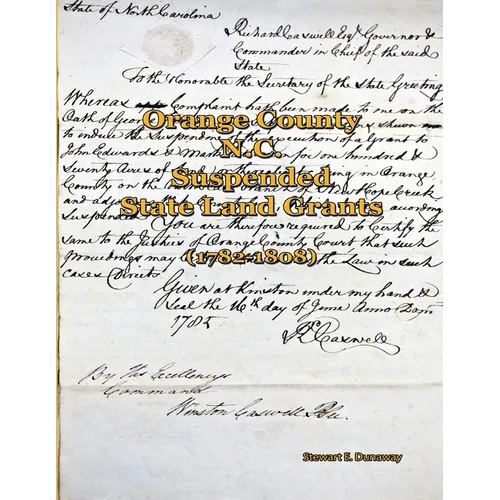 State of North Carolina
Richard Caswell Esqr. Governor &
Commander in Chief of the said
State
To the Honorable the Secretary of the State Greeting
Whereas Complaint hath been made to me on the
Oath of Geor shewn
to induce the Suspending the Execution of a Grant to
John Edwards & Mark for one hundred &
Seventy Acres of Land in Orange
County on the New Hope Creek
and adjoining according
Suspended
You are therefore required to Certify the
same to the Justices of Orange County Court that such
proceedings may the Law in such
cases Directs
Given at Kinston under my hand &
Seal the 16th day of June Anno Dom
1785
Rd Caswell
By His Excellencys
Command
Winston Caswell P. Sec.
Orange County
N.C.
Suspended
State Land Grants
(1782-1808)
Stewart E. Dunaway